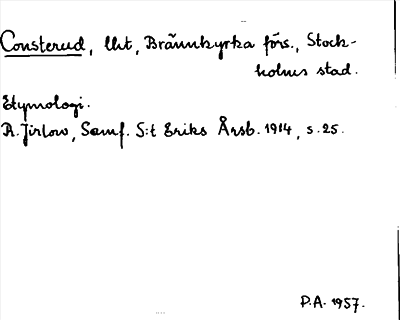 Consterud, lht, Brännkyrka förs., Stock-
holms stad.
Etymologi.
R. Jirlow, Samf. S:t Eriks Årsb. 1914, s. 25.
P.A. 1957.